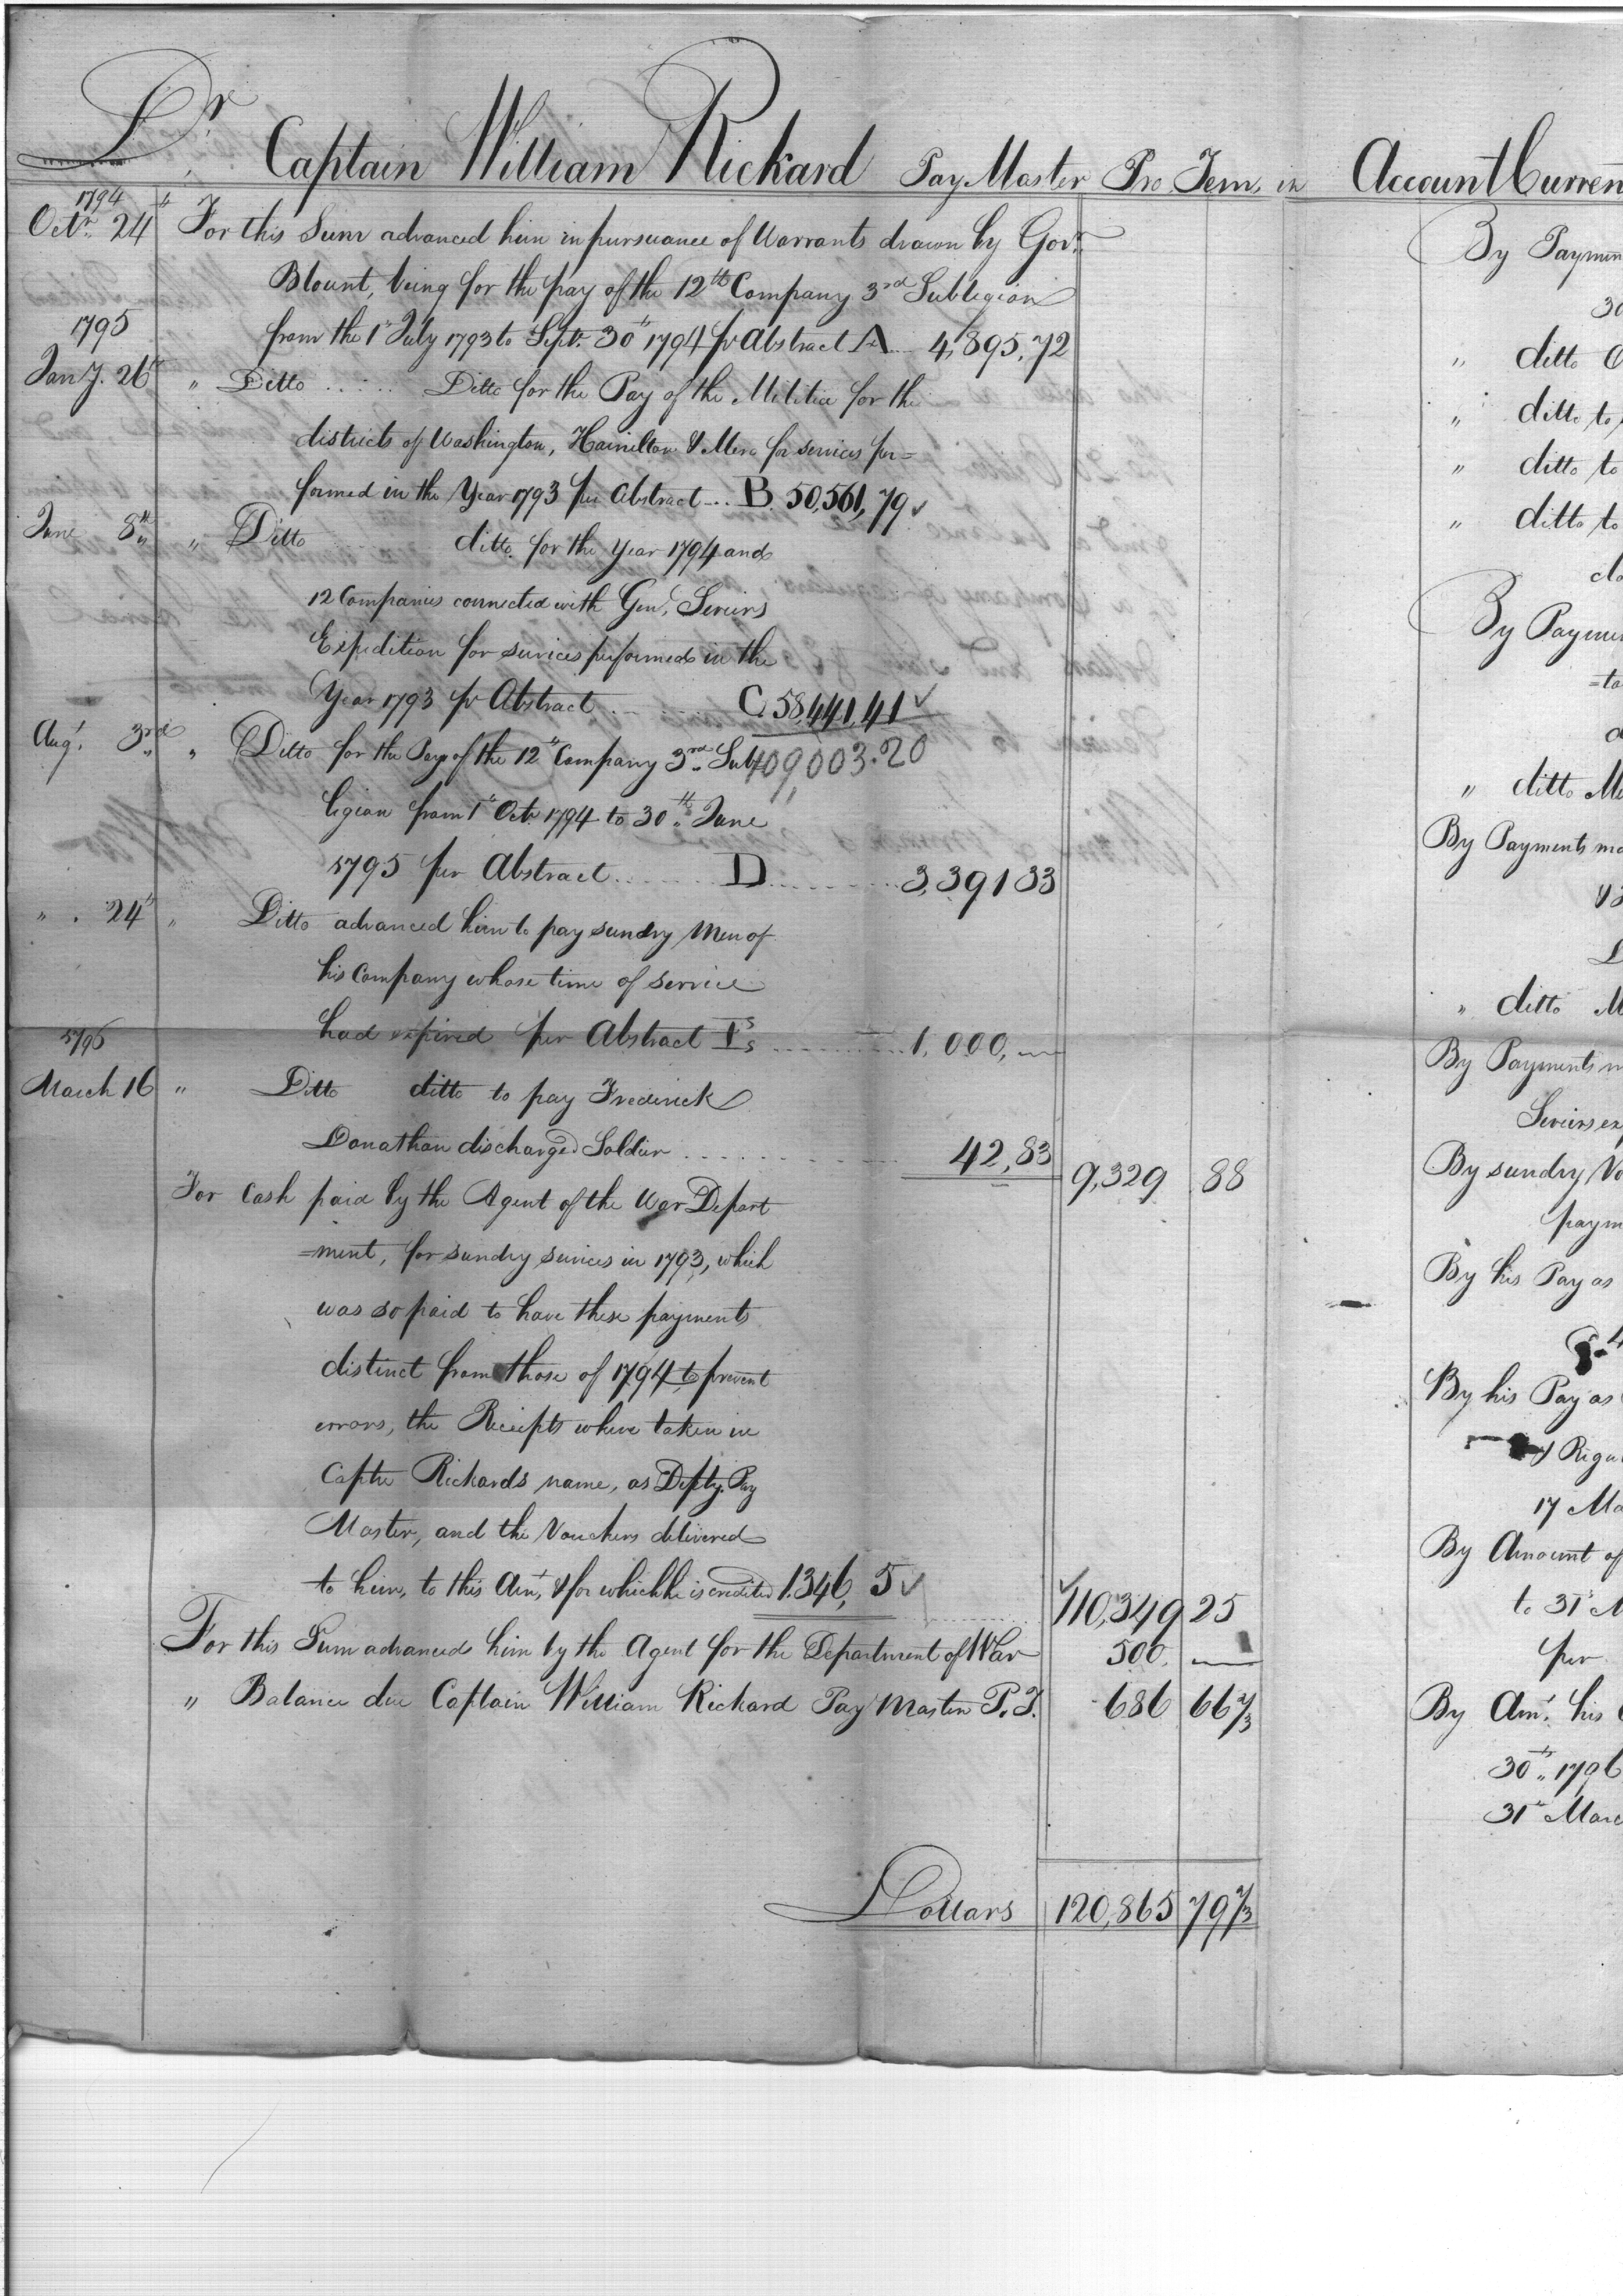 Dr. Captain William Rickard Pay Master Pro Tem. in Account Curren
1794
Octr. 24th For this Sum advanced him in pursuance of Warrants drawn by Govr.
Blount, being for the pay of the 12th Company 3rd Sublegion
1795
from the 1st July 1793 to Septr. 30th 1794 pr Abstract A 4,895,72
Jany. 26th " Ditto ..... Ditto for the Pay of the Militia for the
districts of Washington, Hamilton & Mero for services per=
formed in the Year 1793 per Abstract ... B. 50,561,79
June 8th " Ditto ditto. for the Year 1794 and
12 Companies connected with Genl. Seviers
Expedition for services performed in the
Year 1793 pr Abstract ...... C. 58,441,41
Augt. 3rd " Ditto for the Pay of the 12th Company 3rd Sub
109,003.20
legion from 1st Octr. 1794 to 30th June
1795 per Abstract ...... D ........ 3,391 33
" . 24th " Ditto advanced him to pay sundry Men of
his Company whose time of service
had expired per Abstract ........ 1,000,—
1796
March 16 " Ditto ditto to pay Frederick
Donathan discharged Soldier ........ 42,83 9,329 88
For Cash paid by the Agent of the War Depart
=ment, for sundry services in 1793, which
was so paid to have these payments
distinct from those of 1794 to prevent
errors, the Receipts where taken in
Captn Rickards name, as Depty. Pay
Master, and the Vouchers delivered
to him, to this Amt. & for which he is credited 1.346, 5 110,349 25
For this Sum advanced him by the Agent for the Department of War 500. —
" Balance due Captain William Rickard Pay Master P.T. 686 66 2/3
Dollars 120,865 79 2/3
By Paymen
30
" ditto
" ditto to
" ditto to
" ditto to
By Payme
=to
" ditto M
By Payments ma
&
" ditto M
By Payments m
Seviers ex
By sundry Vo
paym
By his Pay as
By his Pay as
17 Ma
By Amount of
to 31st M
per
By Amt. his
30th 1796
31st Marc